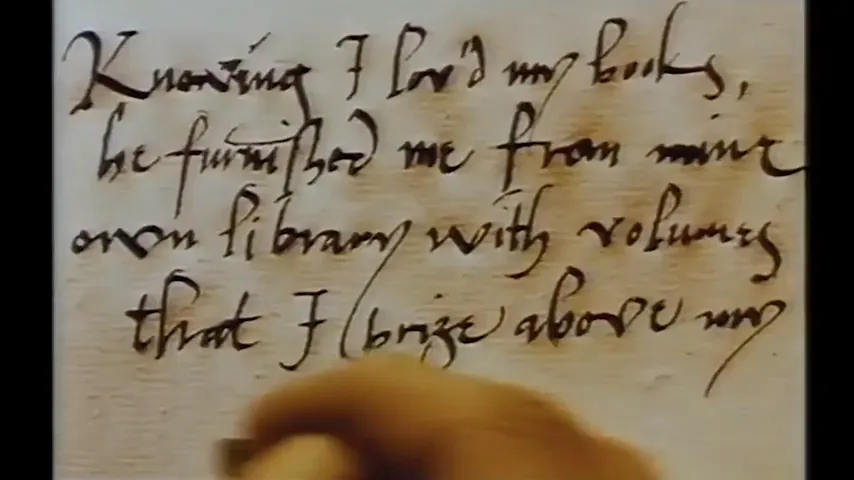 Knowing I lov'd my books,
he furnished me from mine
own library with volumes
that I prize above my